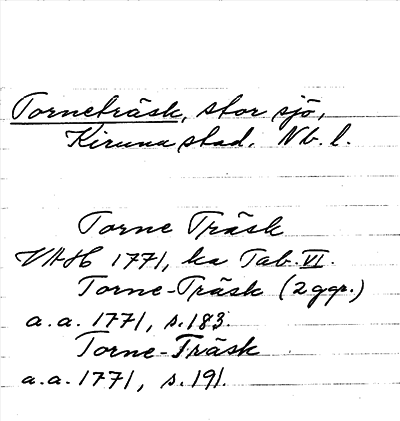 Torneträsk, stor sjö,
Kiruna stad. Nb. l.
Torne Träsk
VAH 1771, ka Tab. VI.
Torne-Träsk (2 ggr.)
a.a. 1771, s. 183.
Torne-Träsk
a.a. 1771, s. 191.